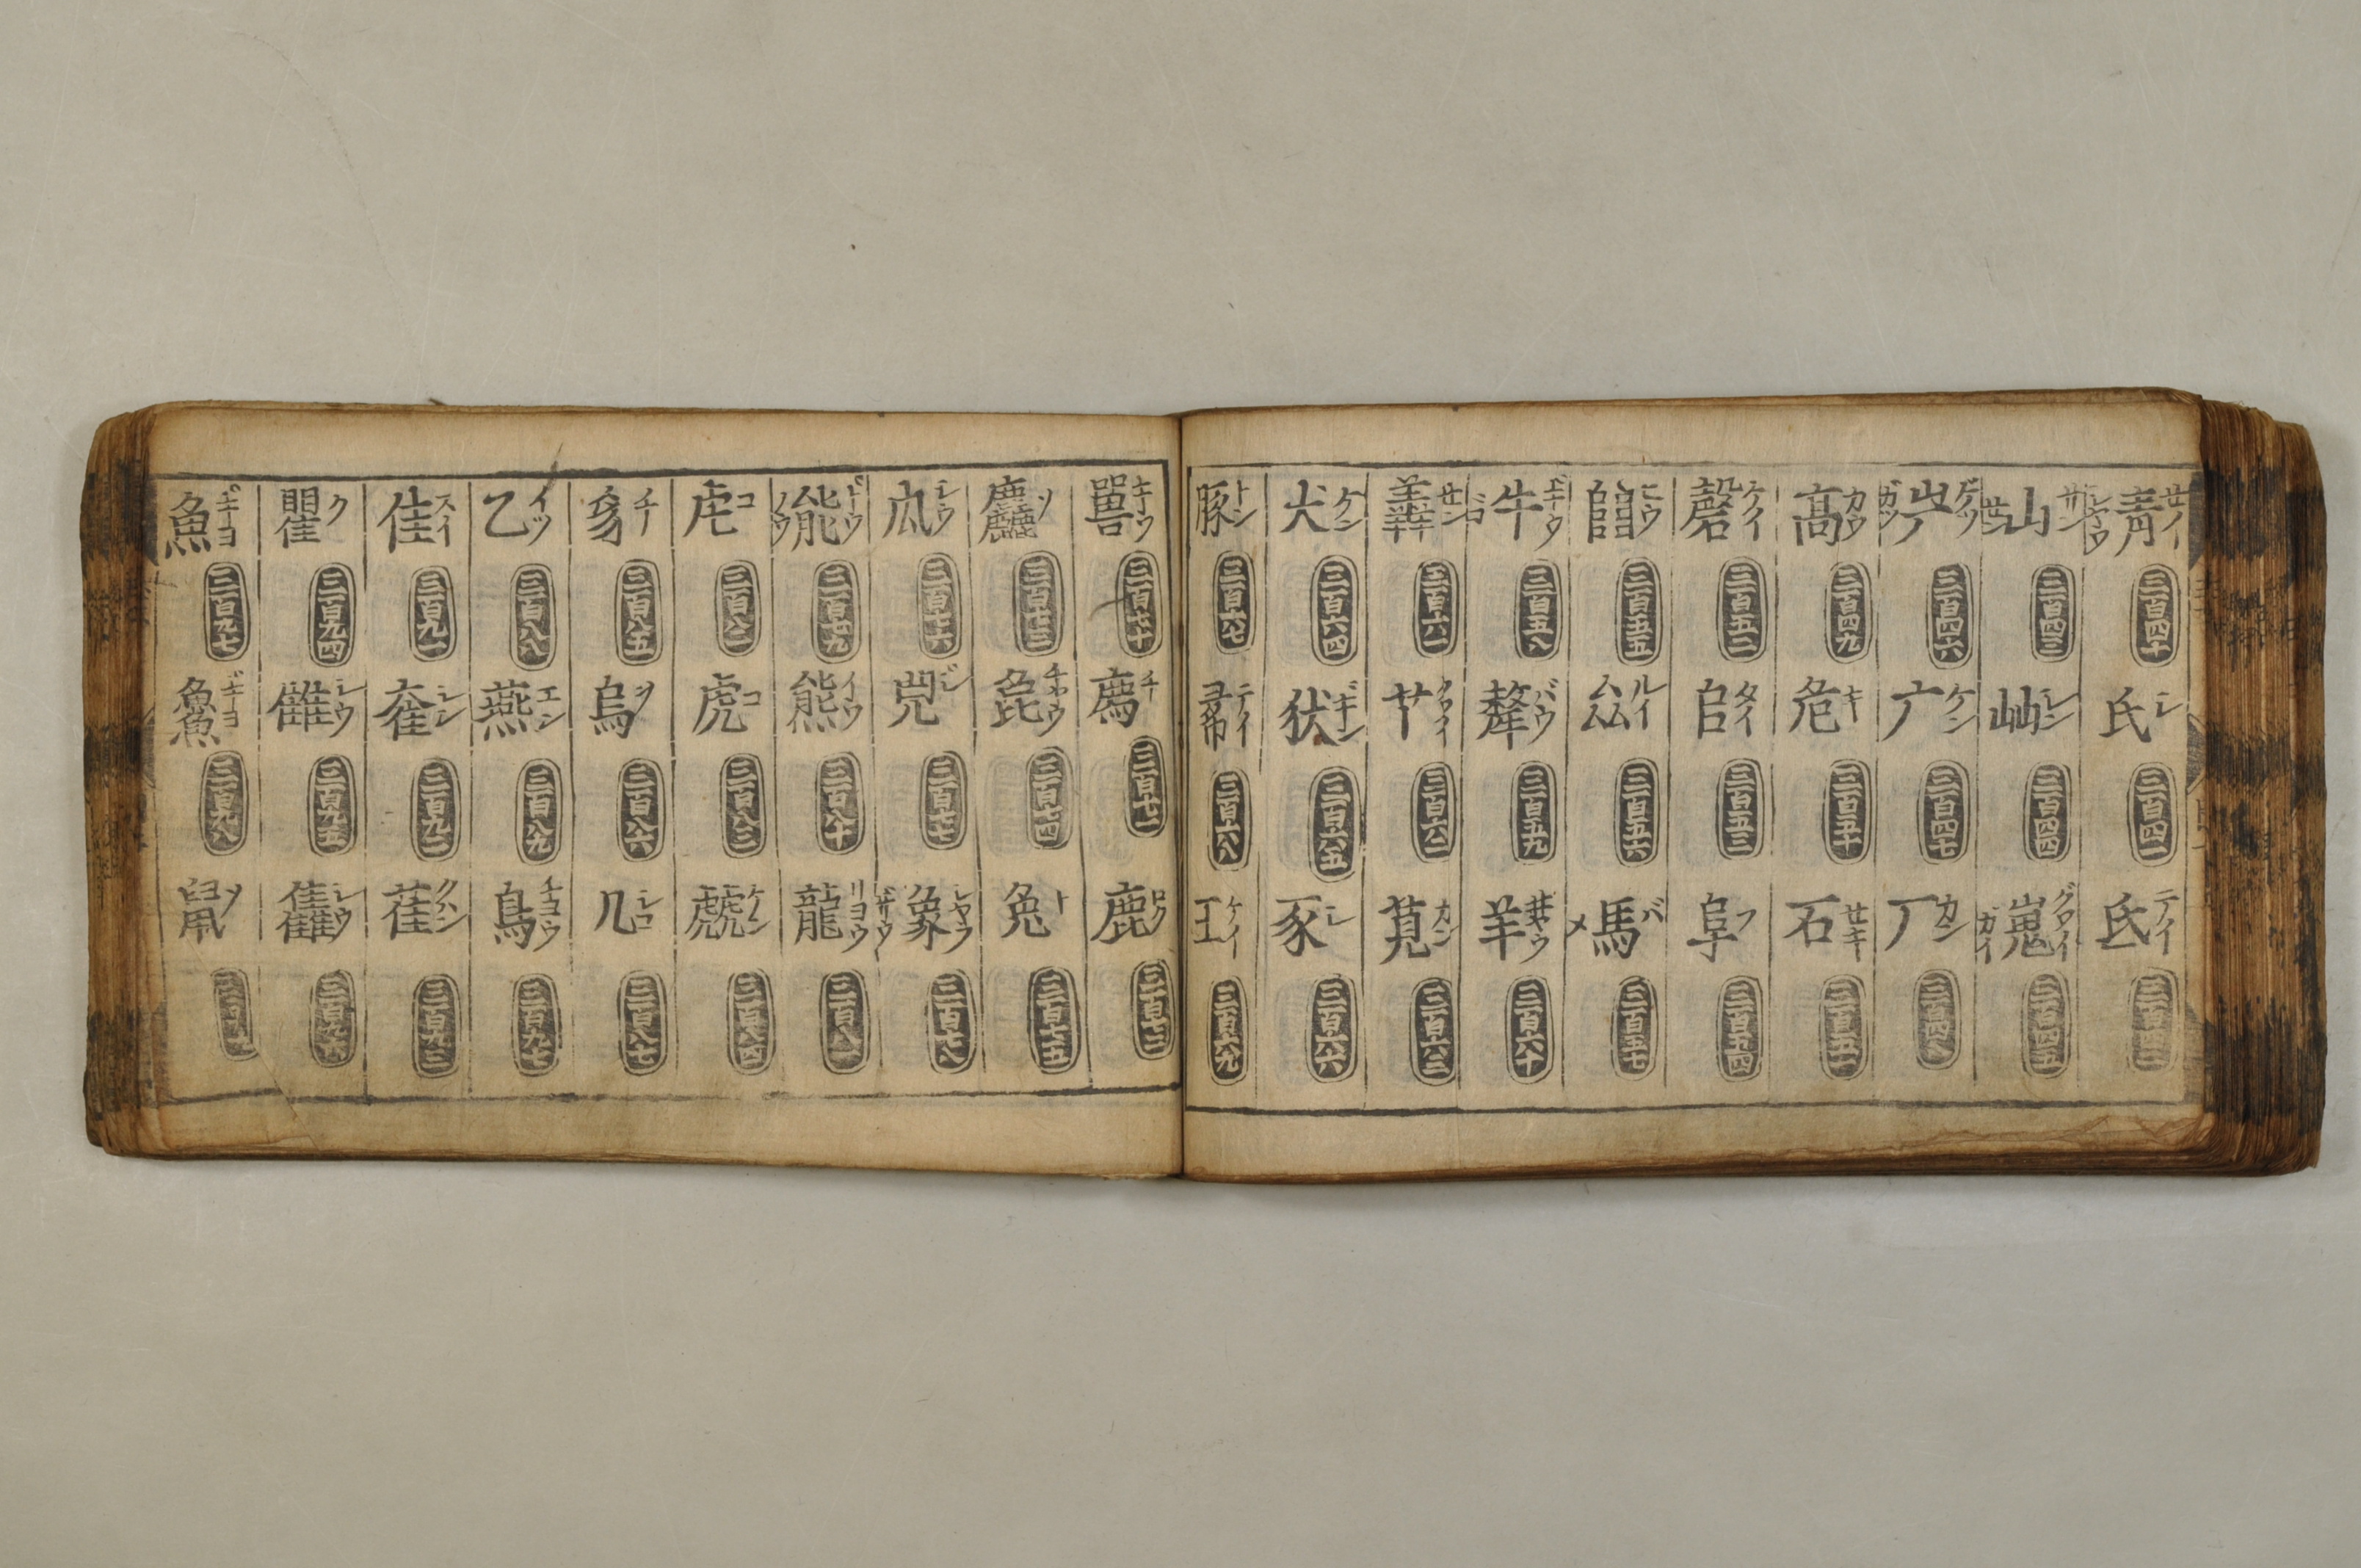 青 セイ シヤウ 三百四十 氏 シ 三百四一 氐 テイ 三百四二
山 サン セン 三百四三 屾 シン 三百四四 嵬 グワイ ガイ 三百四五
屵 ゲツ ガツ 三百四六 广 ケン 三百四七 厂 カン 三百四八
高 カウ 三百四九 危 キ 三百五十 石 セキ 三百五一
磬 ケイ 三百五二 𠂤 タイ 三百五三 阜 フ 三百五四
𨺅 ヒウ 三百五五 厽 ルイ 三百五六 馬 バ メ 三百五七
牛 ギウ ゴ 三百五八 犛 バウ 三百五九 羊 ヤウ 三百六十
羴 セン 三百六一 𦫳 クワイ 三百六二 萈 カン 三百六三
犬 ケン 三百六四 㹜 ギン 三百六五 豕 シ 三百六六
豚 トン 三百六七 㣇 テイ 三百六八 彑 ケイ 三百六九
嘼 キウ 三百七十 廌 チ 三百七一 鹿 ロク 三百七二
麤 ソ 三百七三 㲋 チヤウ 三百七四 兔 ト 三百七五
禸 シウ 三百七六 兕 ジ 三百七七 象 シヤウ ザウ 三百七八
能 ドウ ノウ 三百七九 熊 イウ 三百八十 龍 リヨウ 三百八一
虍 コ 三百八二 虎 コ 三百八三 虤 ケン 三百八四
豸 チ 三百八五 烏 ヲ 三百八六 几 シユ 三百八七
乙 イツ 三百八八 燕 エン 三百八九 鳥 チヨウ
隹 スイ 三百九一 奞 シン 三百九二 萑 クワン 三百九三
瞿 ク 三百九四 雔 シウ 三百九五 雥 シウ 三百九六
魚 ギヨ 三百九七 䲆 ギヨ 三百九八 鼠 ソ